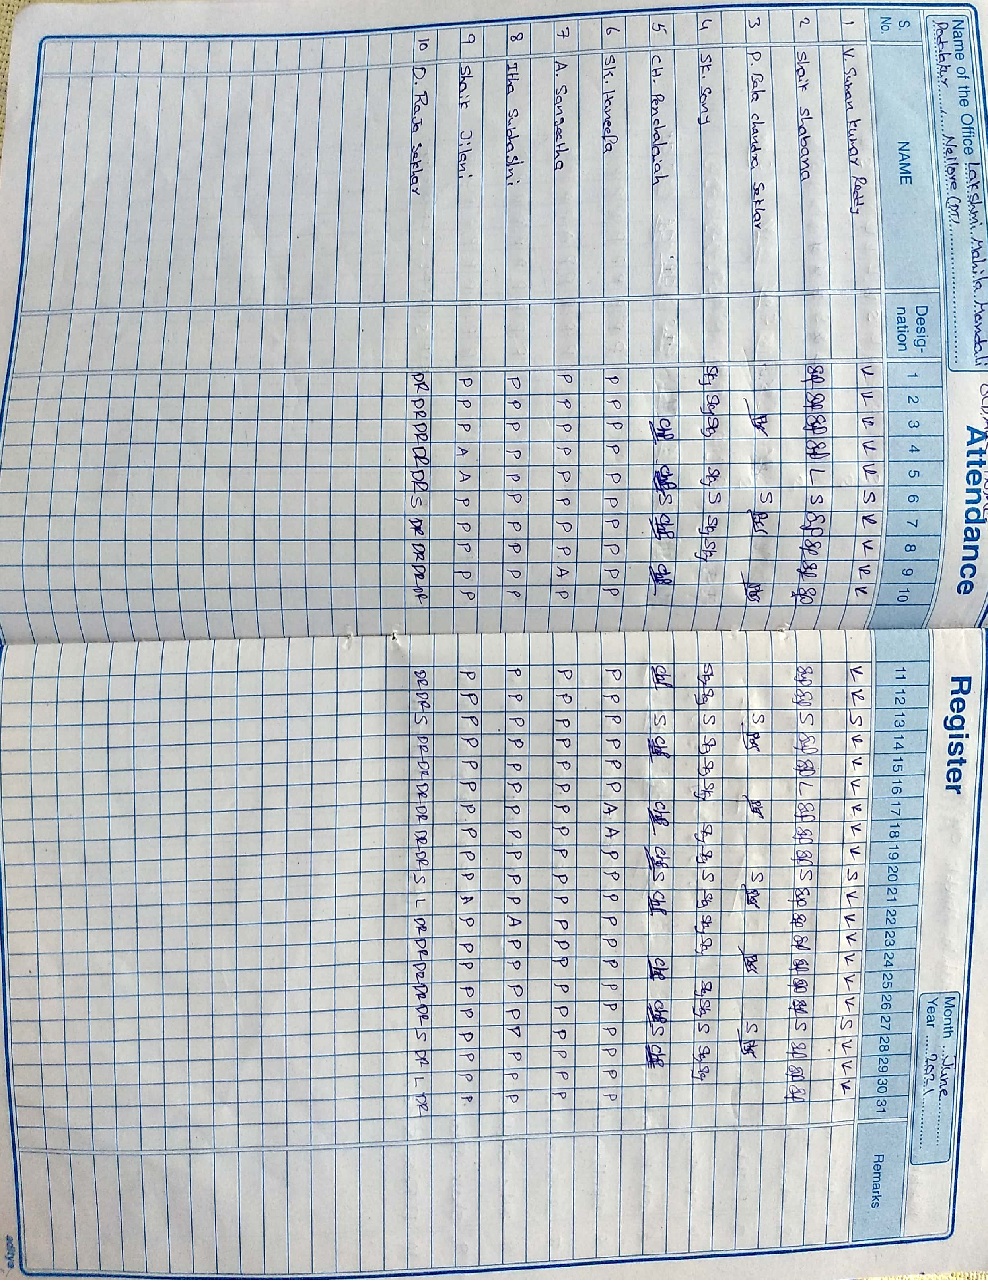 Attendance Register
Name of the Office Lakshmi Mahila Mandali
Nellore (DT)
Month June
Year 2021
S. No. NAME Desig-nation 1 2 3 4 5 6 7 8 9 10 11 12 13 14 15 16 17 18 19 20 21 22 23 24 25 26 27 28 29 30 31 Remarks
1 V. Suman Kumar Reddy V K K K K S K K K K K K S K K K K K K S K K K K K K S K K K
2 Shaik Shabana L S S L S S
3 P. Bala chandra Sekhar S S S S
4 Sk. Sony S S S S
5 CH. Penchalaiah S S S S
6 Sk. Haneefa P P P P P P P P P P P P P P P P A A P P P P P P P P P P P P
7 A. Sangeetha P P P P P P P P A P P P P P P P P P P P P P P P P P P P P P
8 Itha Suldashni P P P P P P P P P P P P P P P P P P P P P A P P P P P P P P
9 Shaik Jilani P P P A A P P P P P P P P P P P P P P P A P P P P P P P P P
10 D. Raja Sekhar DR DR DR DR DR S DR DR DR DR DR DR S DR DR DR DR DR DR S L DR DR DR DR DR S DR L DR
aditya